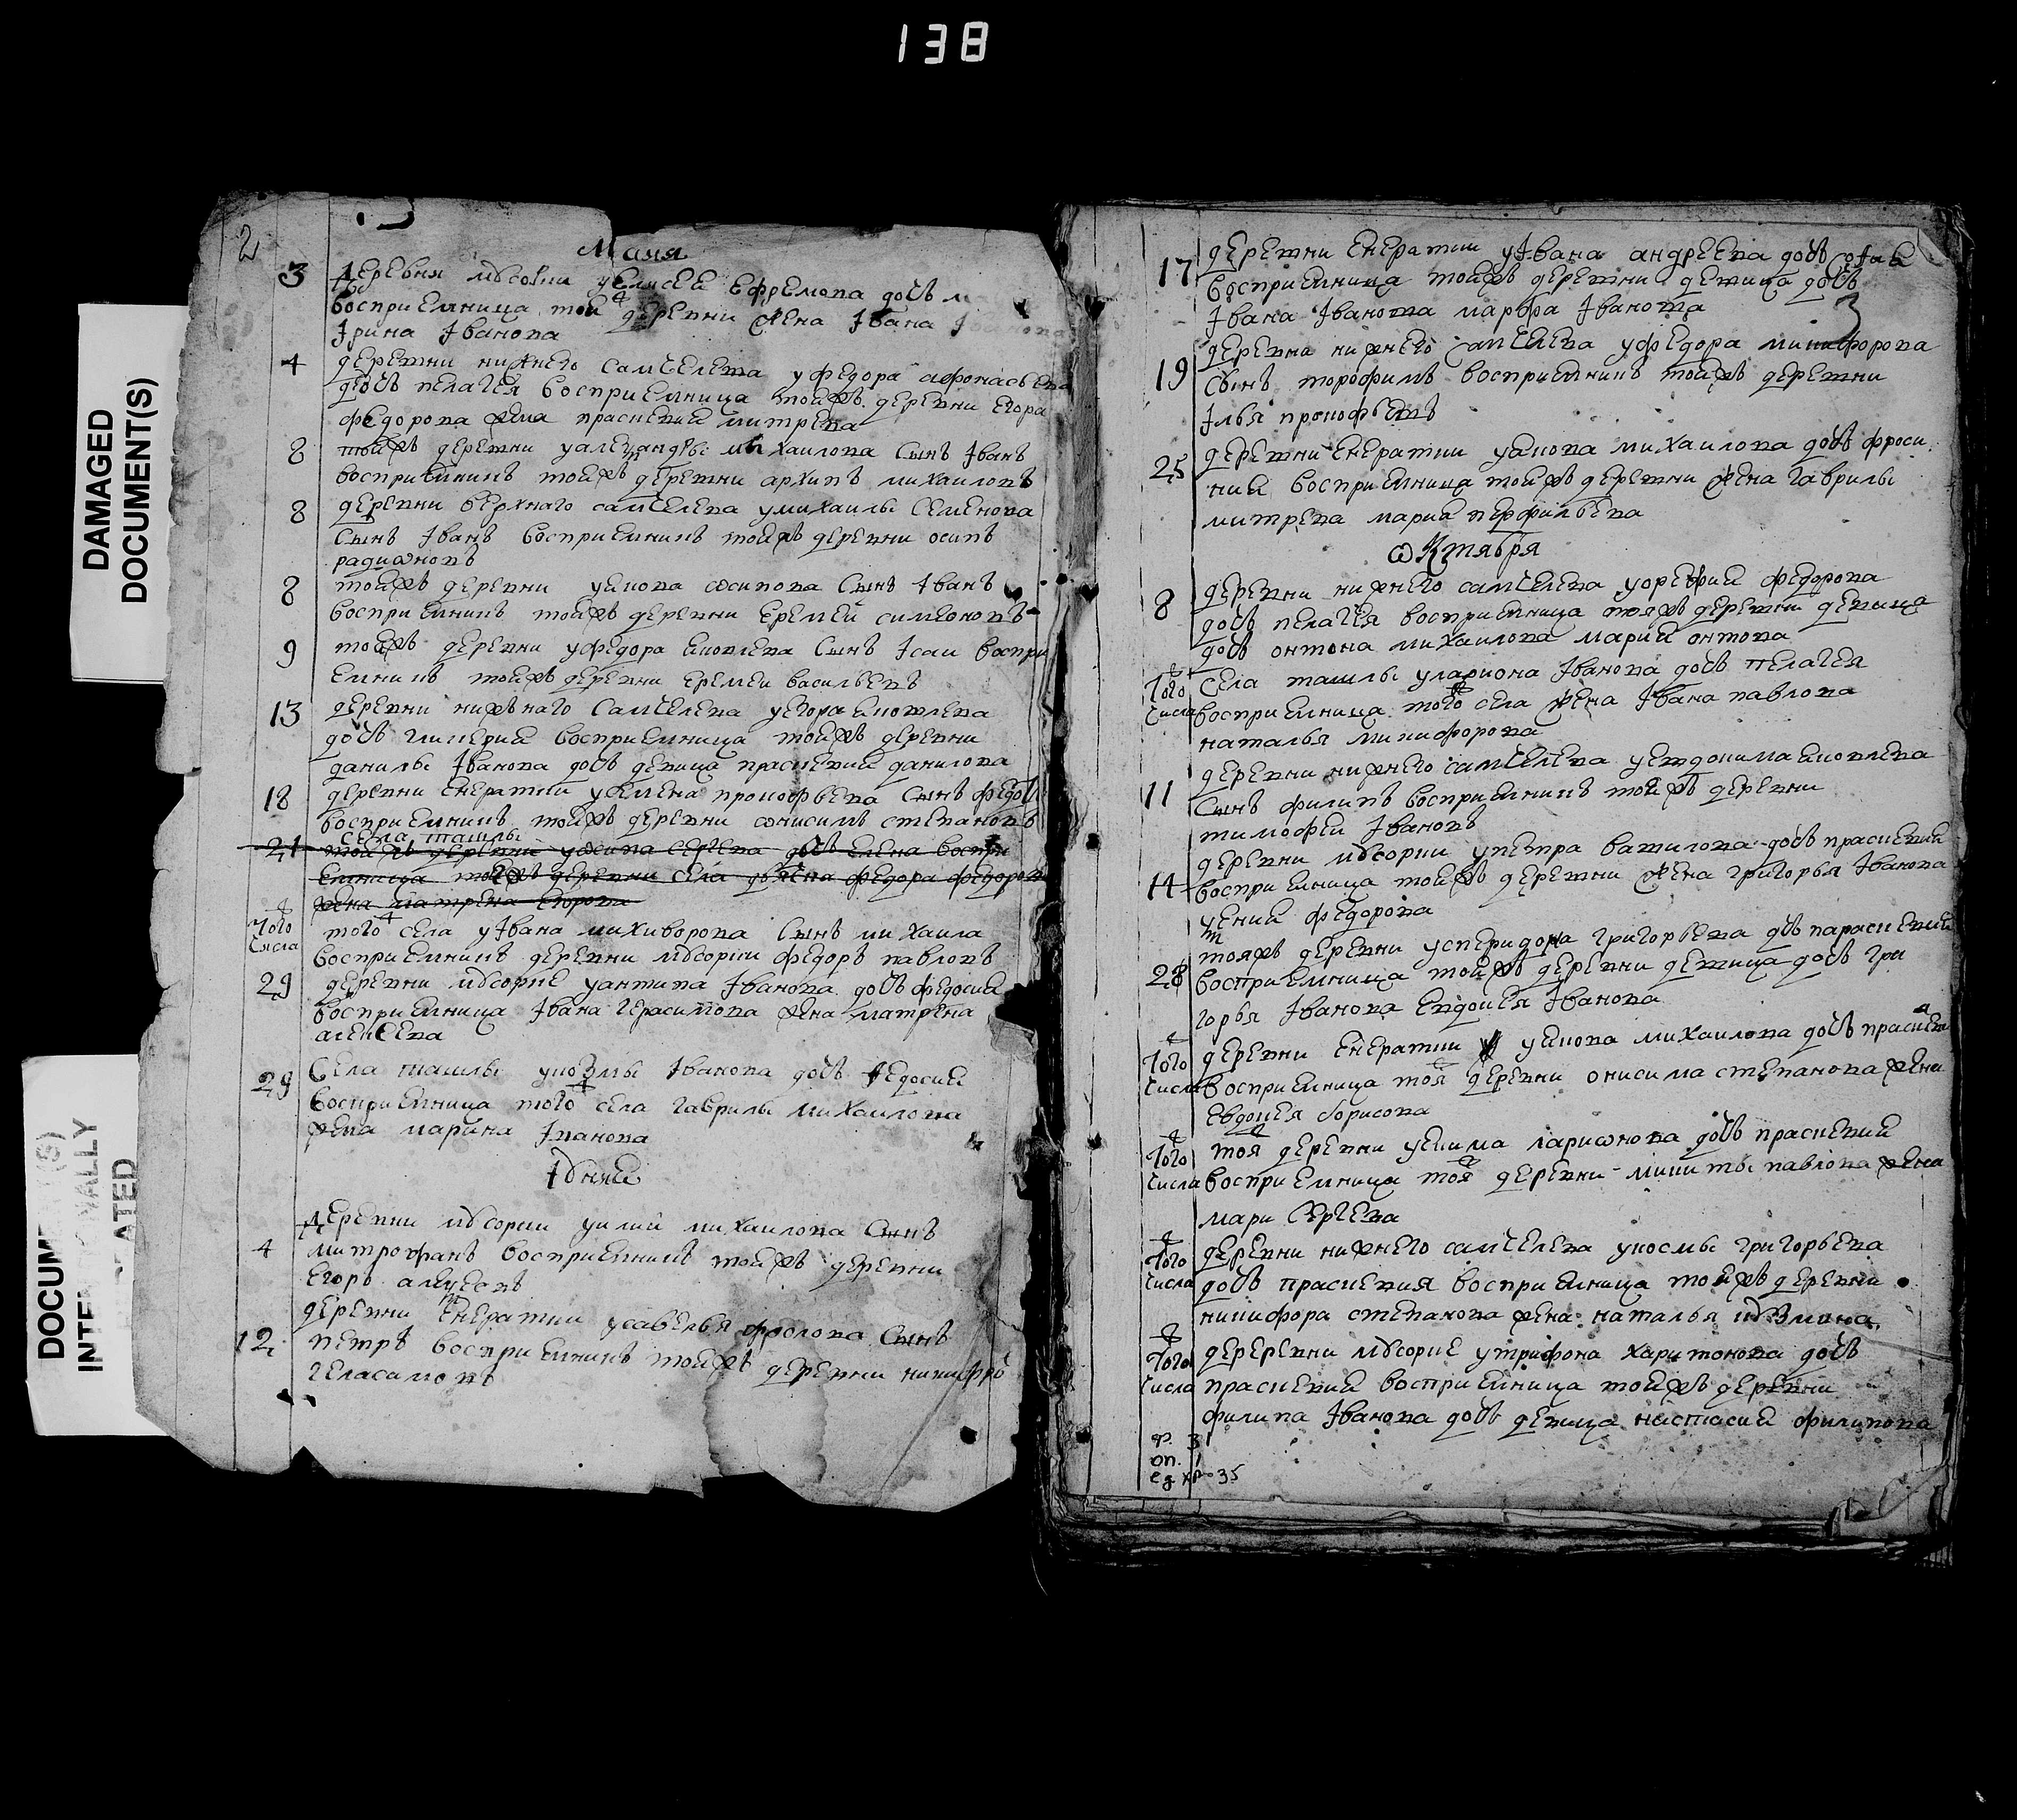 138
DAMAGED
DOCUMENT(S)
2
Маия
3 Деревня мѣсории уелисеа ефремова дочь
восприемница той деревни жена Iвана
Iрина Iванова
4 деревни нижнего самчелева уфедора афонасьева
дочь пелагея восприемница тойжъ деревни егора
федорова жена праскевиа митрева
8 тойжъ деревни уалеѯандры михаилова сынъ Iванъ
восприемникъ тойжъ деревни архипъ михаиловъ
8 деревни верхнаго самчелева умихаилы семенова
сынъ Iванъ восприемникъ тойжъ деревни осипъ
радиѡновъ
8 тойжъ деревни уакова ѡсипова сынъ Iванъ
восприемникъ тойжъ деревни еремей симеоновъ
9 тойжъ деревни уфедора аковлева сынъ Iсаи воспри
емникъ тойжъ деревни еремеи васильевъ
13 деревни нижнаго самчелева уегора аковлева
дочь гликериа восприемница тойжъ деревни
данилы Iванова дочь девица праскевиа данилова
18 деревни енератки усемена прокофьева сынъ федо
восприемникъ тойжъ деревни ѡнисимъ степановъ
села ташлы
21 тойжъ деревни уѡсипа сергева дочь елена воспри
емница тойжъ деревни села федора федорова
жена матрена егорова
того числа того села уIвана никиворова сынъ михаила
восприемникъ деревни мѣсории федоръ павловъ
29 деревни мѣсорие уантипа Iванова дочь федосиа
восприемница Iвана герасимова жена матрена
алексеева
29 Села ташлы укозмы Iванова дочь федосиа
восприемница того села гаврилы михаилова
жена марина Iванова
Iюниа
4 Деревни мѣсории уилии михаилова сынъ
митрофанъ восприемникъ тойжъ деревни
егоръ алеѯеевъ
12 деревни енератки усавелья фролова сынъ
петръ восприемникъ тойжъ деревни никифоръ
геласимовъ
17 деревни енератки уIвана андреева дочь софиа
восприемница тойжъ деревни девица дочь
Iвана Iванова марфа Iванова
3
19 деревна нижнего самчелева уфедора никифорова
сынъ торофимъ восприемникъ тойжъ деревни
Iлья прокофьевъ
25 деревни енератки уакова михаилова дочь фроси
ниа восприемница тойжъ деревни жена гаврилы
митрева мариа перфильева
ѡктября
8 деревни нижнего самчелева уорефиа федорова
дочь пелагея восприемница тояжъ деревни девица
дочь онтона михаилова мариа онтова
того числа села ташлы улариона Iванова дочь пелагея
восприемница того села жена Iвана павлова
наталья никифорова
11 деревни нижнего самчелева уевдокима аковлева
сынъ филипъ восприемникъ тойжъ деревни
тимофеи Iвановъ
14 деревни мѣсории упетра вавилова дочь праскевиа
восприемница тойжъ деревни жена григорья Iванова
ѯениа федорова
28 тояжъ деревни успиридона григорьева дочь параскевиа
восприемница тойжъ деревни девица дочь гри
горья Iванова евдокея Iванова
того числа деревни енератки уакова михаилова дочь праскева
восприемница тоя деревни онисима степанова жена
евдокея борисова
того числа тоя деревни уекима лариѡнова дочь праскевиа
восприемница тоя деревни микиты павлова жена
мари сергева
того числа деревни нижнего самчелева укосмы григорьева
дочь праскевия восприемница тойжъ деревни
никифора степанова жена наталья кѣзмина
того числа дереревни мѣсорие утрифона харитонова дочь
праскевиа восприемница тойжъ деревни
филипа Iванова дочь девица настасиа филипова
ф. 31
оп. 1
ед хр 35